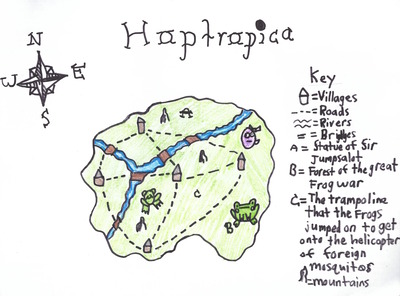 Haptrapica
N
W E
S
Key
=Villages
=Roads
=Rivers
=Bridges
A = Statue of Sir
Jumpsalot
B= Forest of the great
Frog war
C=The trampoline
that the Frogs
jumped on to get
onto the helicopter
of foreign
mosquitos
=mountains
A
C
B